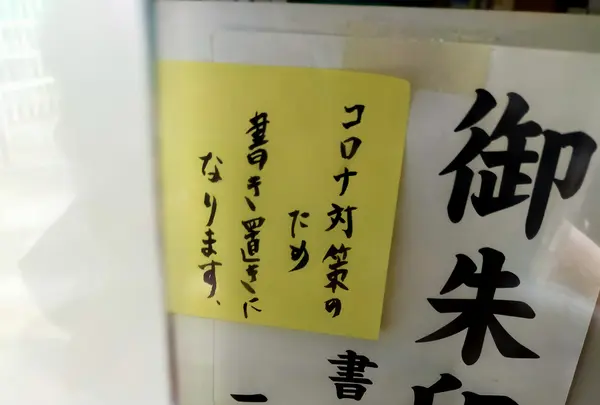 御朱印
コロナ対策の
ため
書き置きに
なります、
書
一